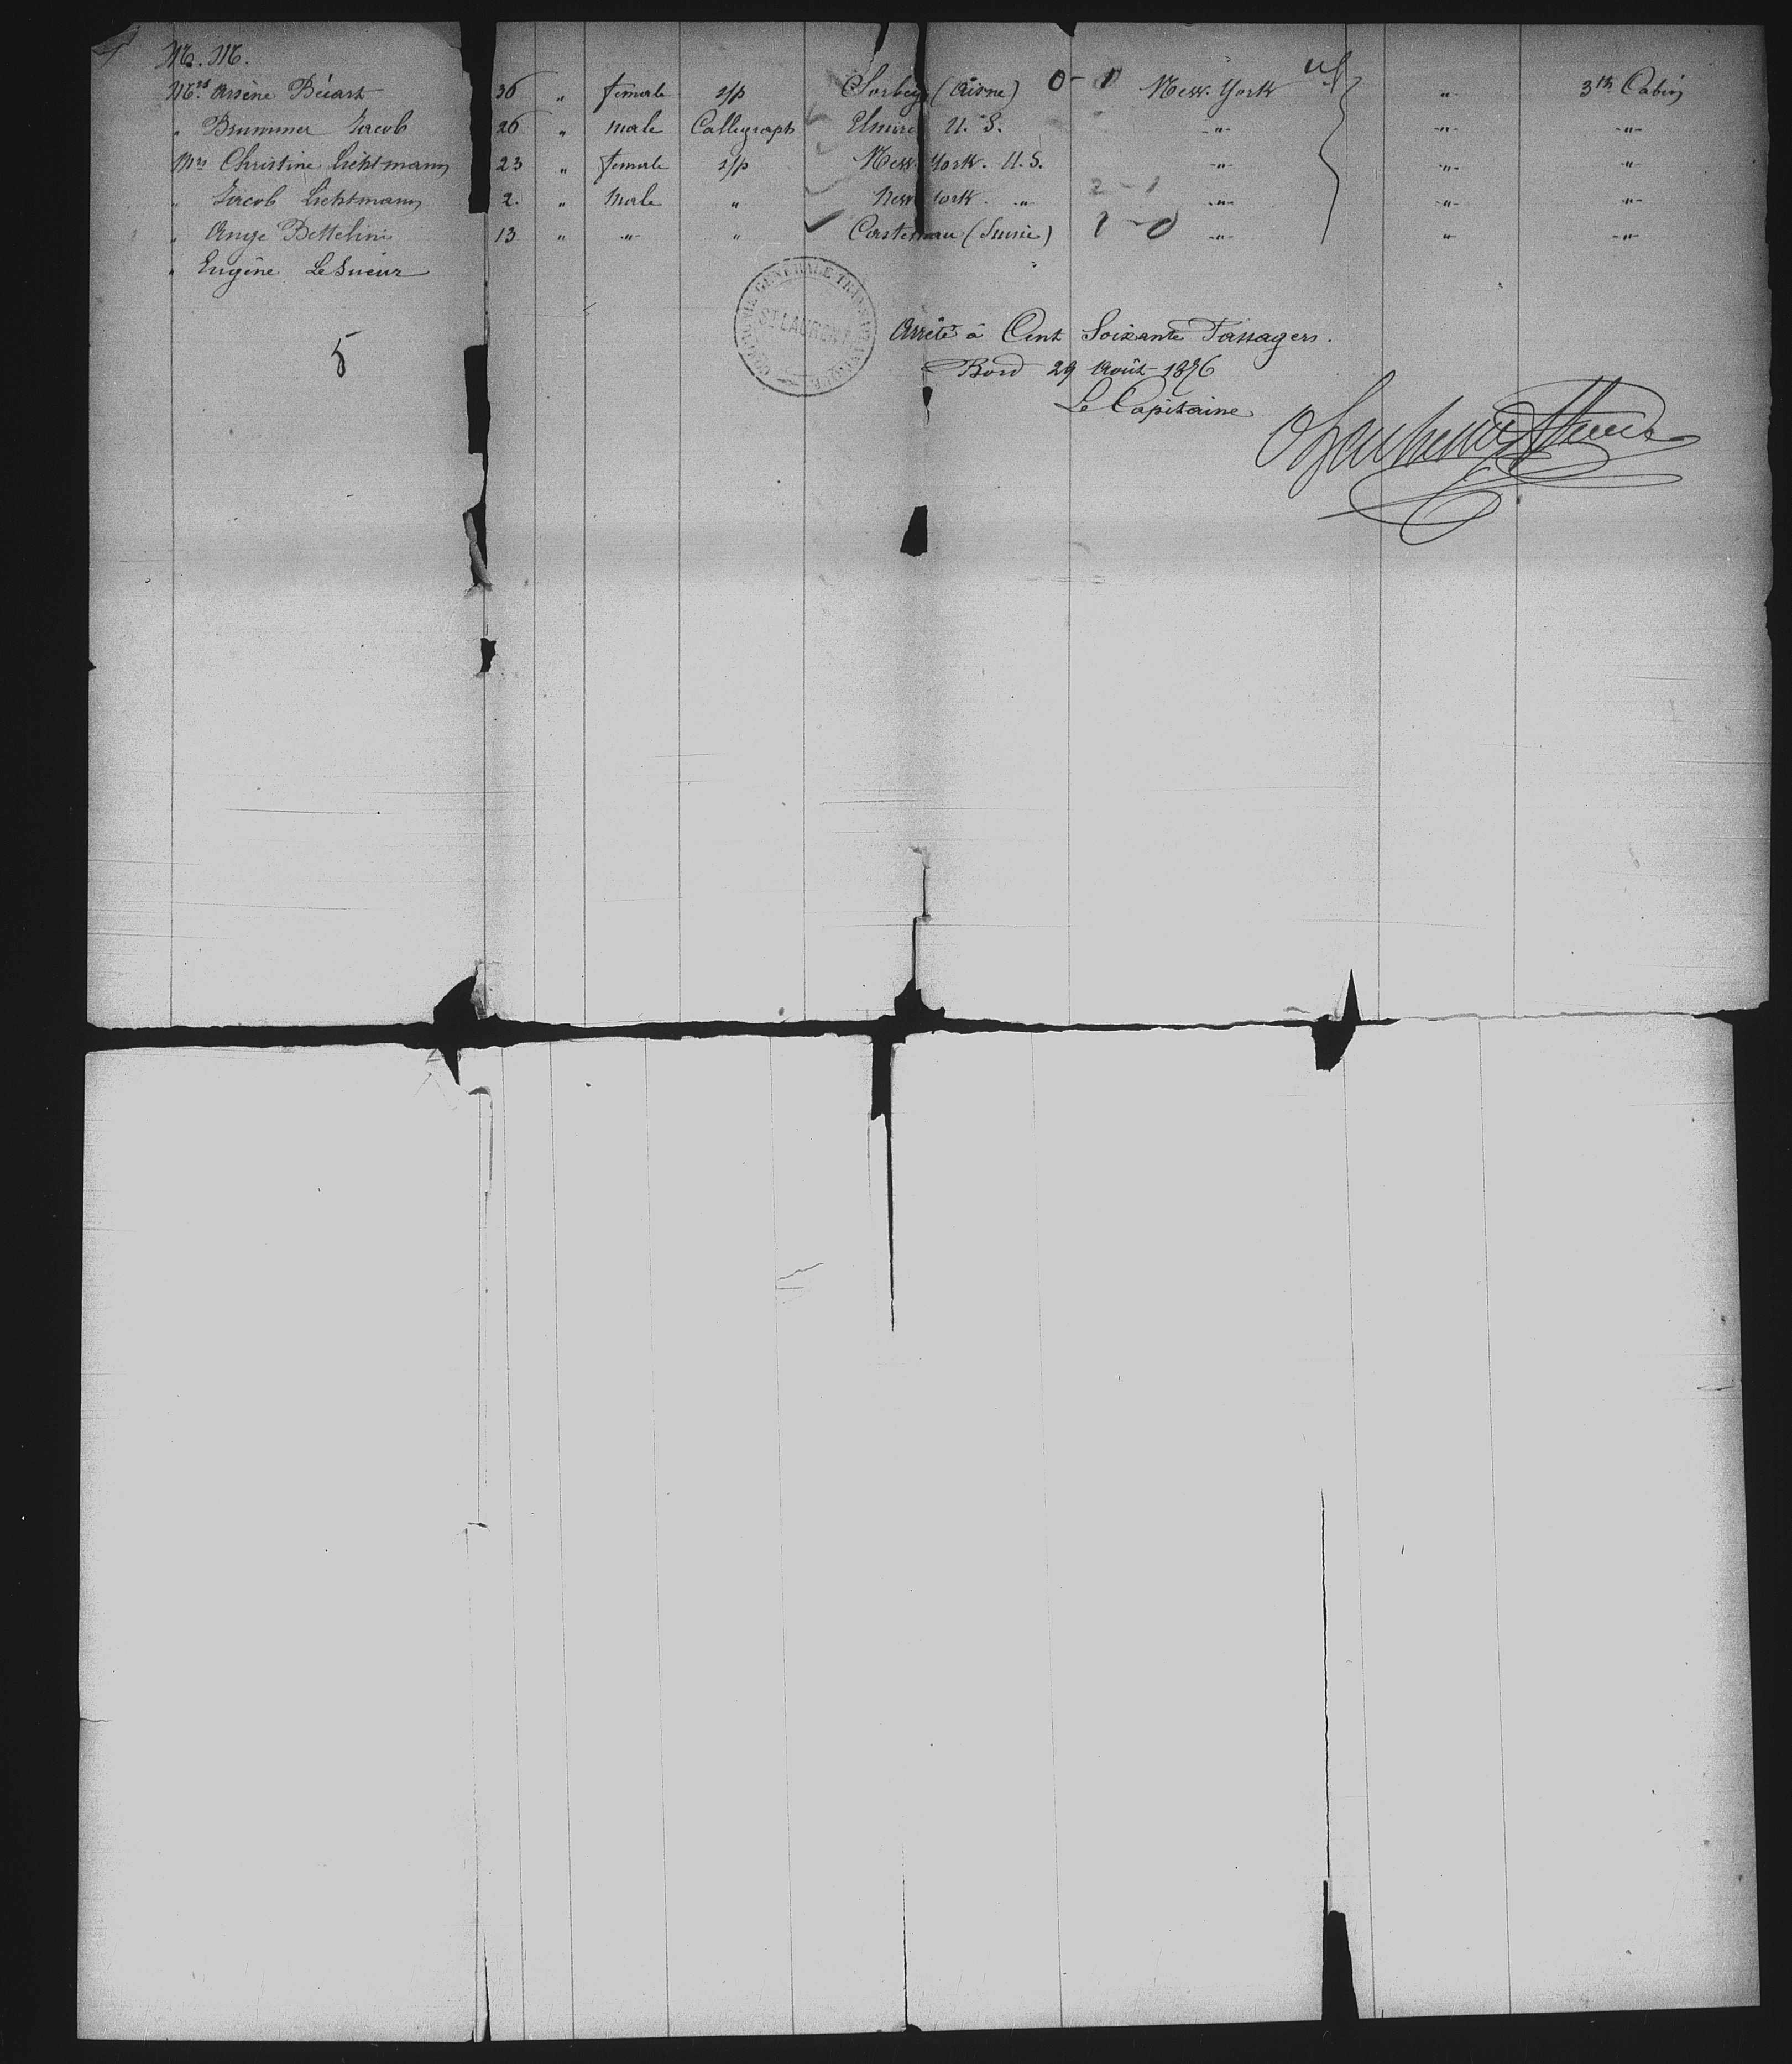 M. M.
Mrs Arsène Béiart 36 " female s/p Sorbey (Aisne) 0 - 1 New. York " 3th Cabin
" Brummer Jacob 26 " male Calligraph Elmire U. S. -"- -"- -"-
Mrs Christine Lichtmann 23 " female s/p New York. U. S. -"- -"- -"-
" Jacob Lichtmann 2. " Male " New York. -"- 2 - 1 -"- -"- -"-
" Ange Bettelini 13 " -"- " (Suisse) 1 - 0 -"- " -"-
" Eugène Le Sueur
5
COMPAGNIE GÉNÉRALE TRANSATLANTIQUE
ST LAURENT
Arrêté à Cent Soixante Passagers.
Bord 29 Août 1876
Le Capitaine